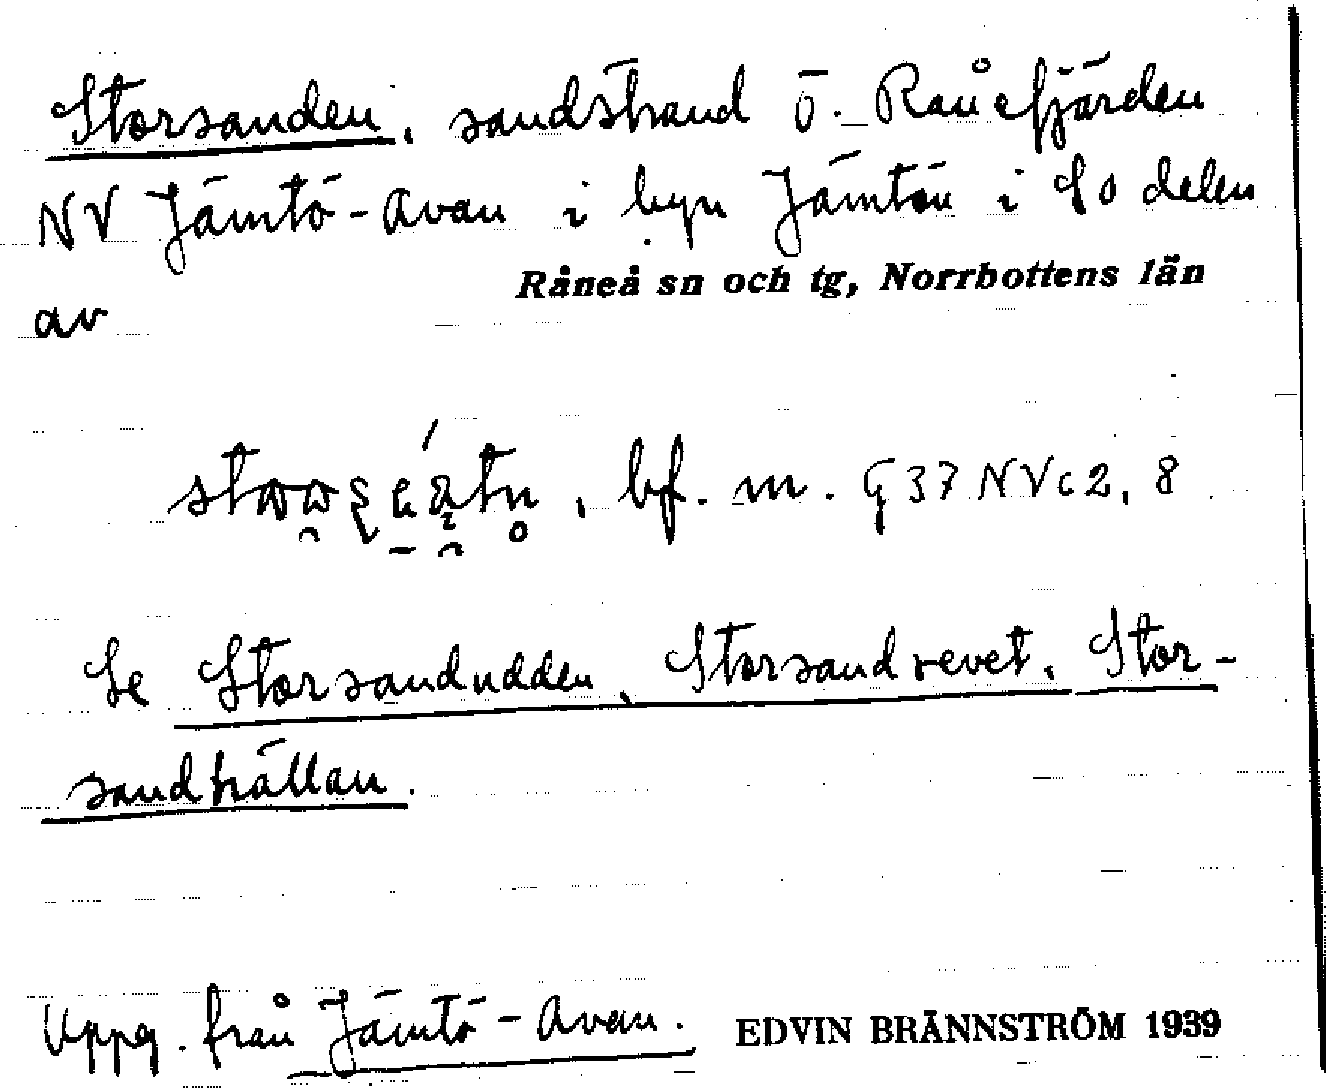 Storsanden, sandstrand ö. Rånefjärden
NV Jämtö-Avan i byn Jämtön i So delen
Råneå sn och tg, Norrbottens län
av
bf. m. G 37 NV c 2, 8
Se Storsandudden, Storsandrevet, Stor-
sandhällan.
Uppg. från Jämtö-Avan. EDVIN BRÄNNSTRÖM 1939